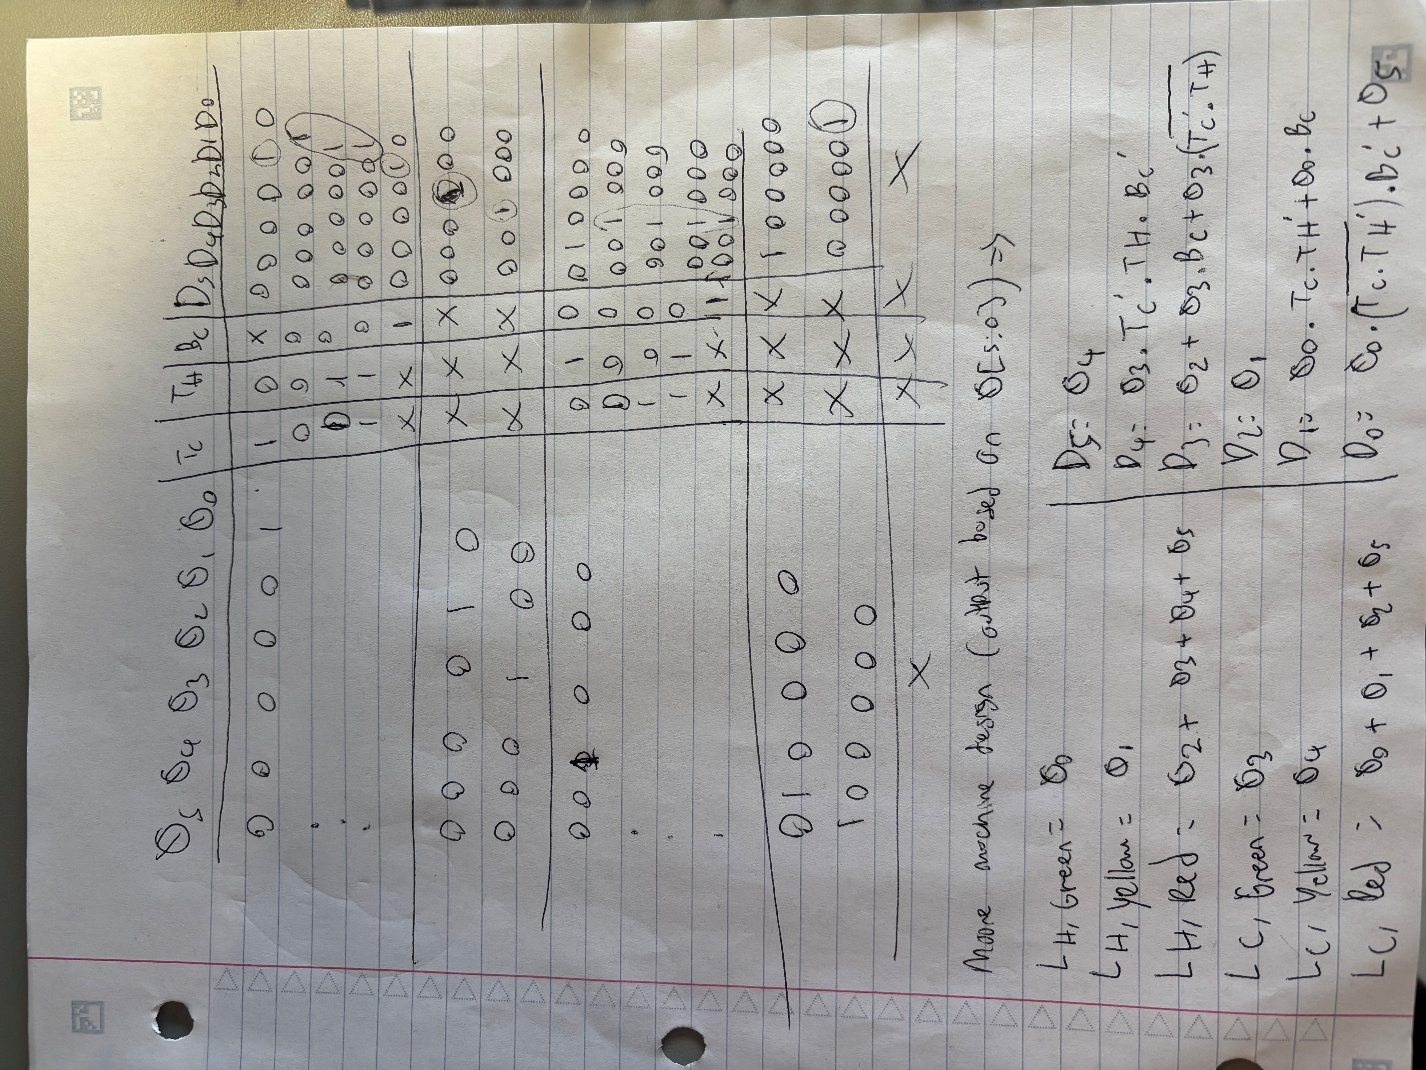 Q5 Q4 Q3 Q2 Q1 Q0 | Tc | TH | Bc | D5 D4 D3 D2 D1 D0
0 0 0 0 0 1 1 0 X 0 0 0 0 1 0
0 0 0 0 0 0 0 0 1
1 0 0 0 0 0 0 1
1 1 0 0 0 0 0 0 1
X X 1 0 0 0 0 1 0
0 0 0 0 1 0 X X X 0 0 0 1 0 0
0 0 0 1 0 0 X X X 0 0 1 0 0 0
0 0 1 0 0 0 0 1 0 0 1 0 0 0 0
0 0 0 0 0 1 0 0 0
1 0 0 0 0 1 0 0 0
1 1 0 0 0 1 0 0 0
X X 1 0 0 1 0 0 0
0 1 0 0 0 0 X X X 1 0 0 0 0 0
1 0 0 0 0 0 X X X 0 0 0 0 0 1
X X X X X
Moore machine design (output based on Q[5:0]) =>
LH, Green = Q0
LH, Yellow = Q1
LH, Red = Q2 + Q3 + Q4 + Q5
LC, Green = Q3
LC, Yellow = Q4
LC, Red = Q0 + Q1 + Q2 + Q5
D5 = Q4
D4 = Q3.Tc'.TH.Bc'
D3 = Q2 + Q3.Bc + Q3.(Tc'.TH)̅
D2 = Q1
D1 = Q0.Tc.TH' + Q0.Bc
D0 = Q0.(Tc.TH')̅.Bc' + Q5